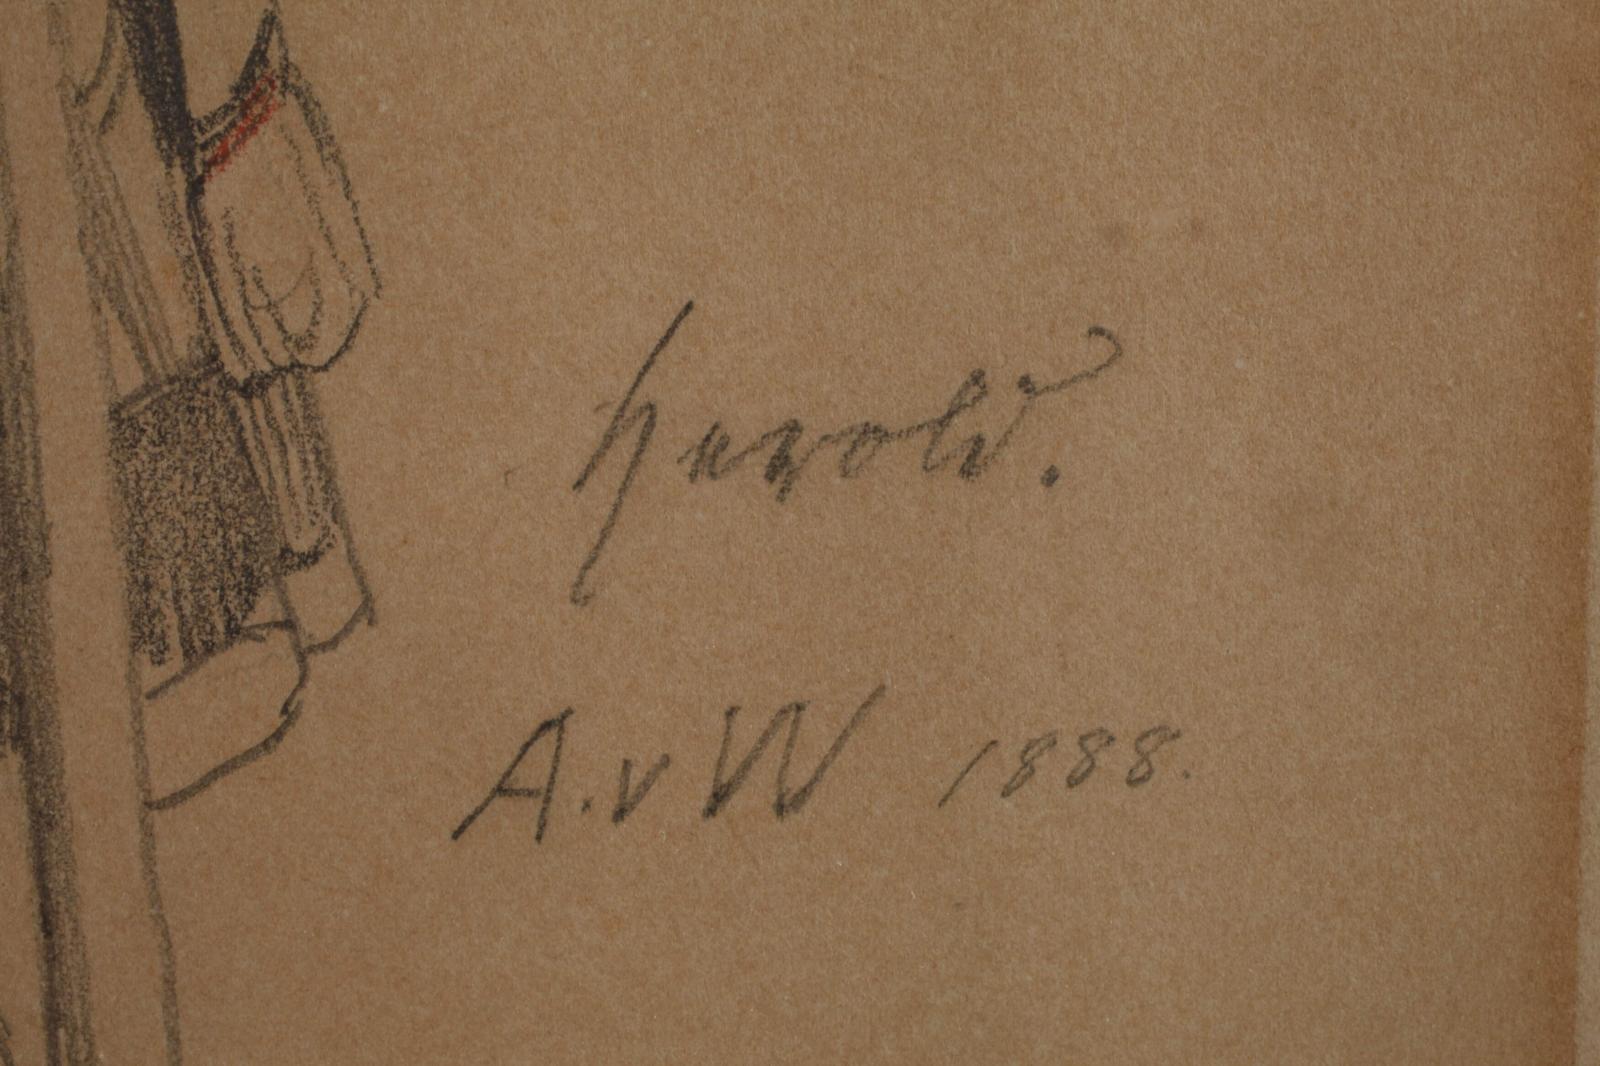 Herold.
A. v W 1888.